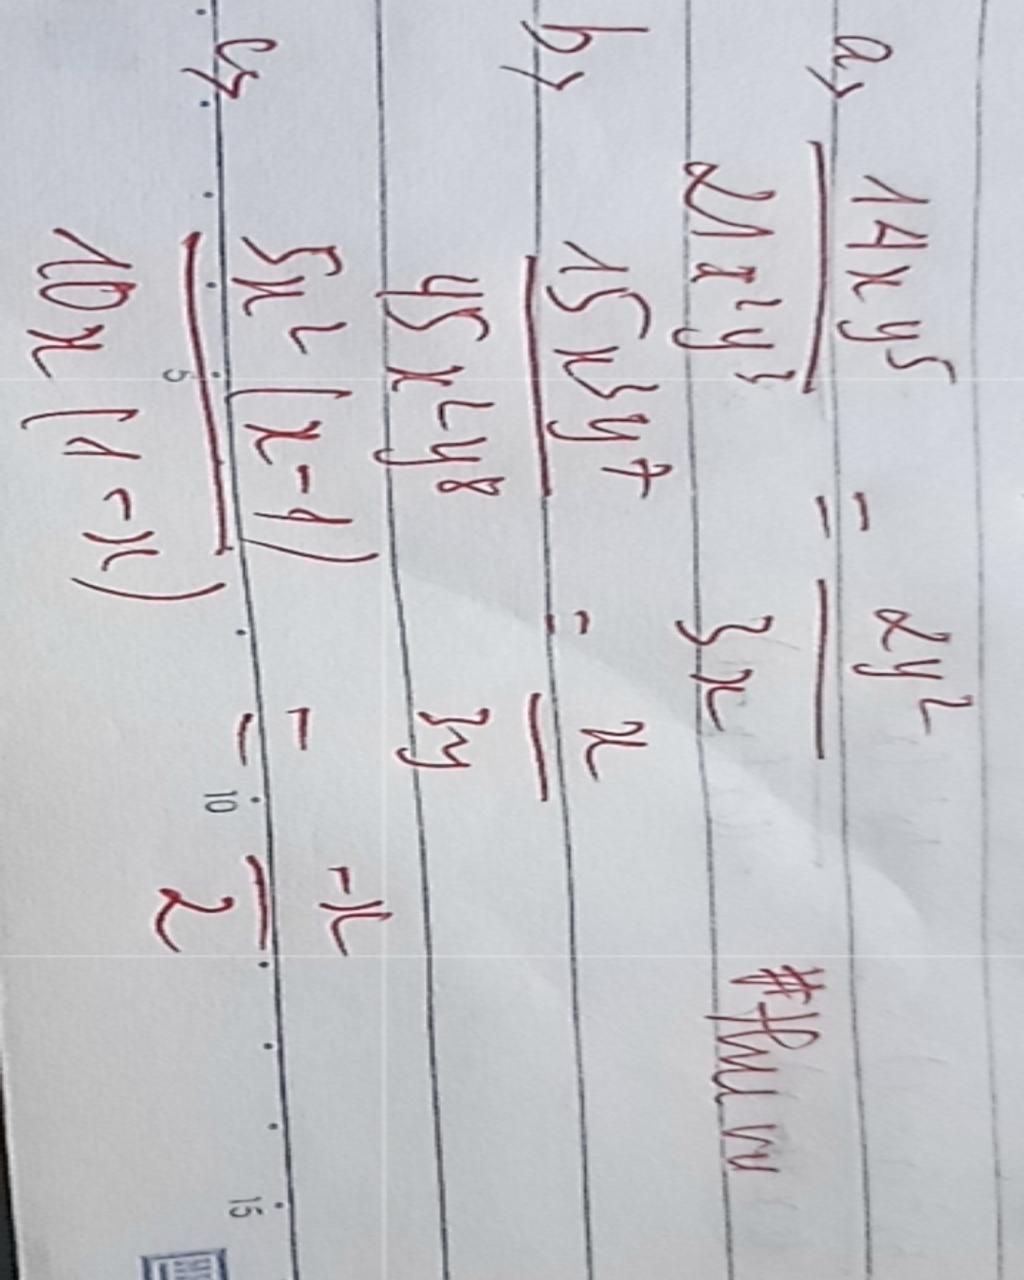 a, 14xy⁵/21x²y³ = 2y²/3x
b, 15x³y⁷/45x²y⁸ = x/3y
c, 5x²(x-1)/10x(1-x) = -x/2
5 10 15